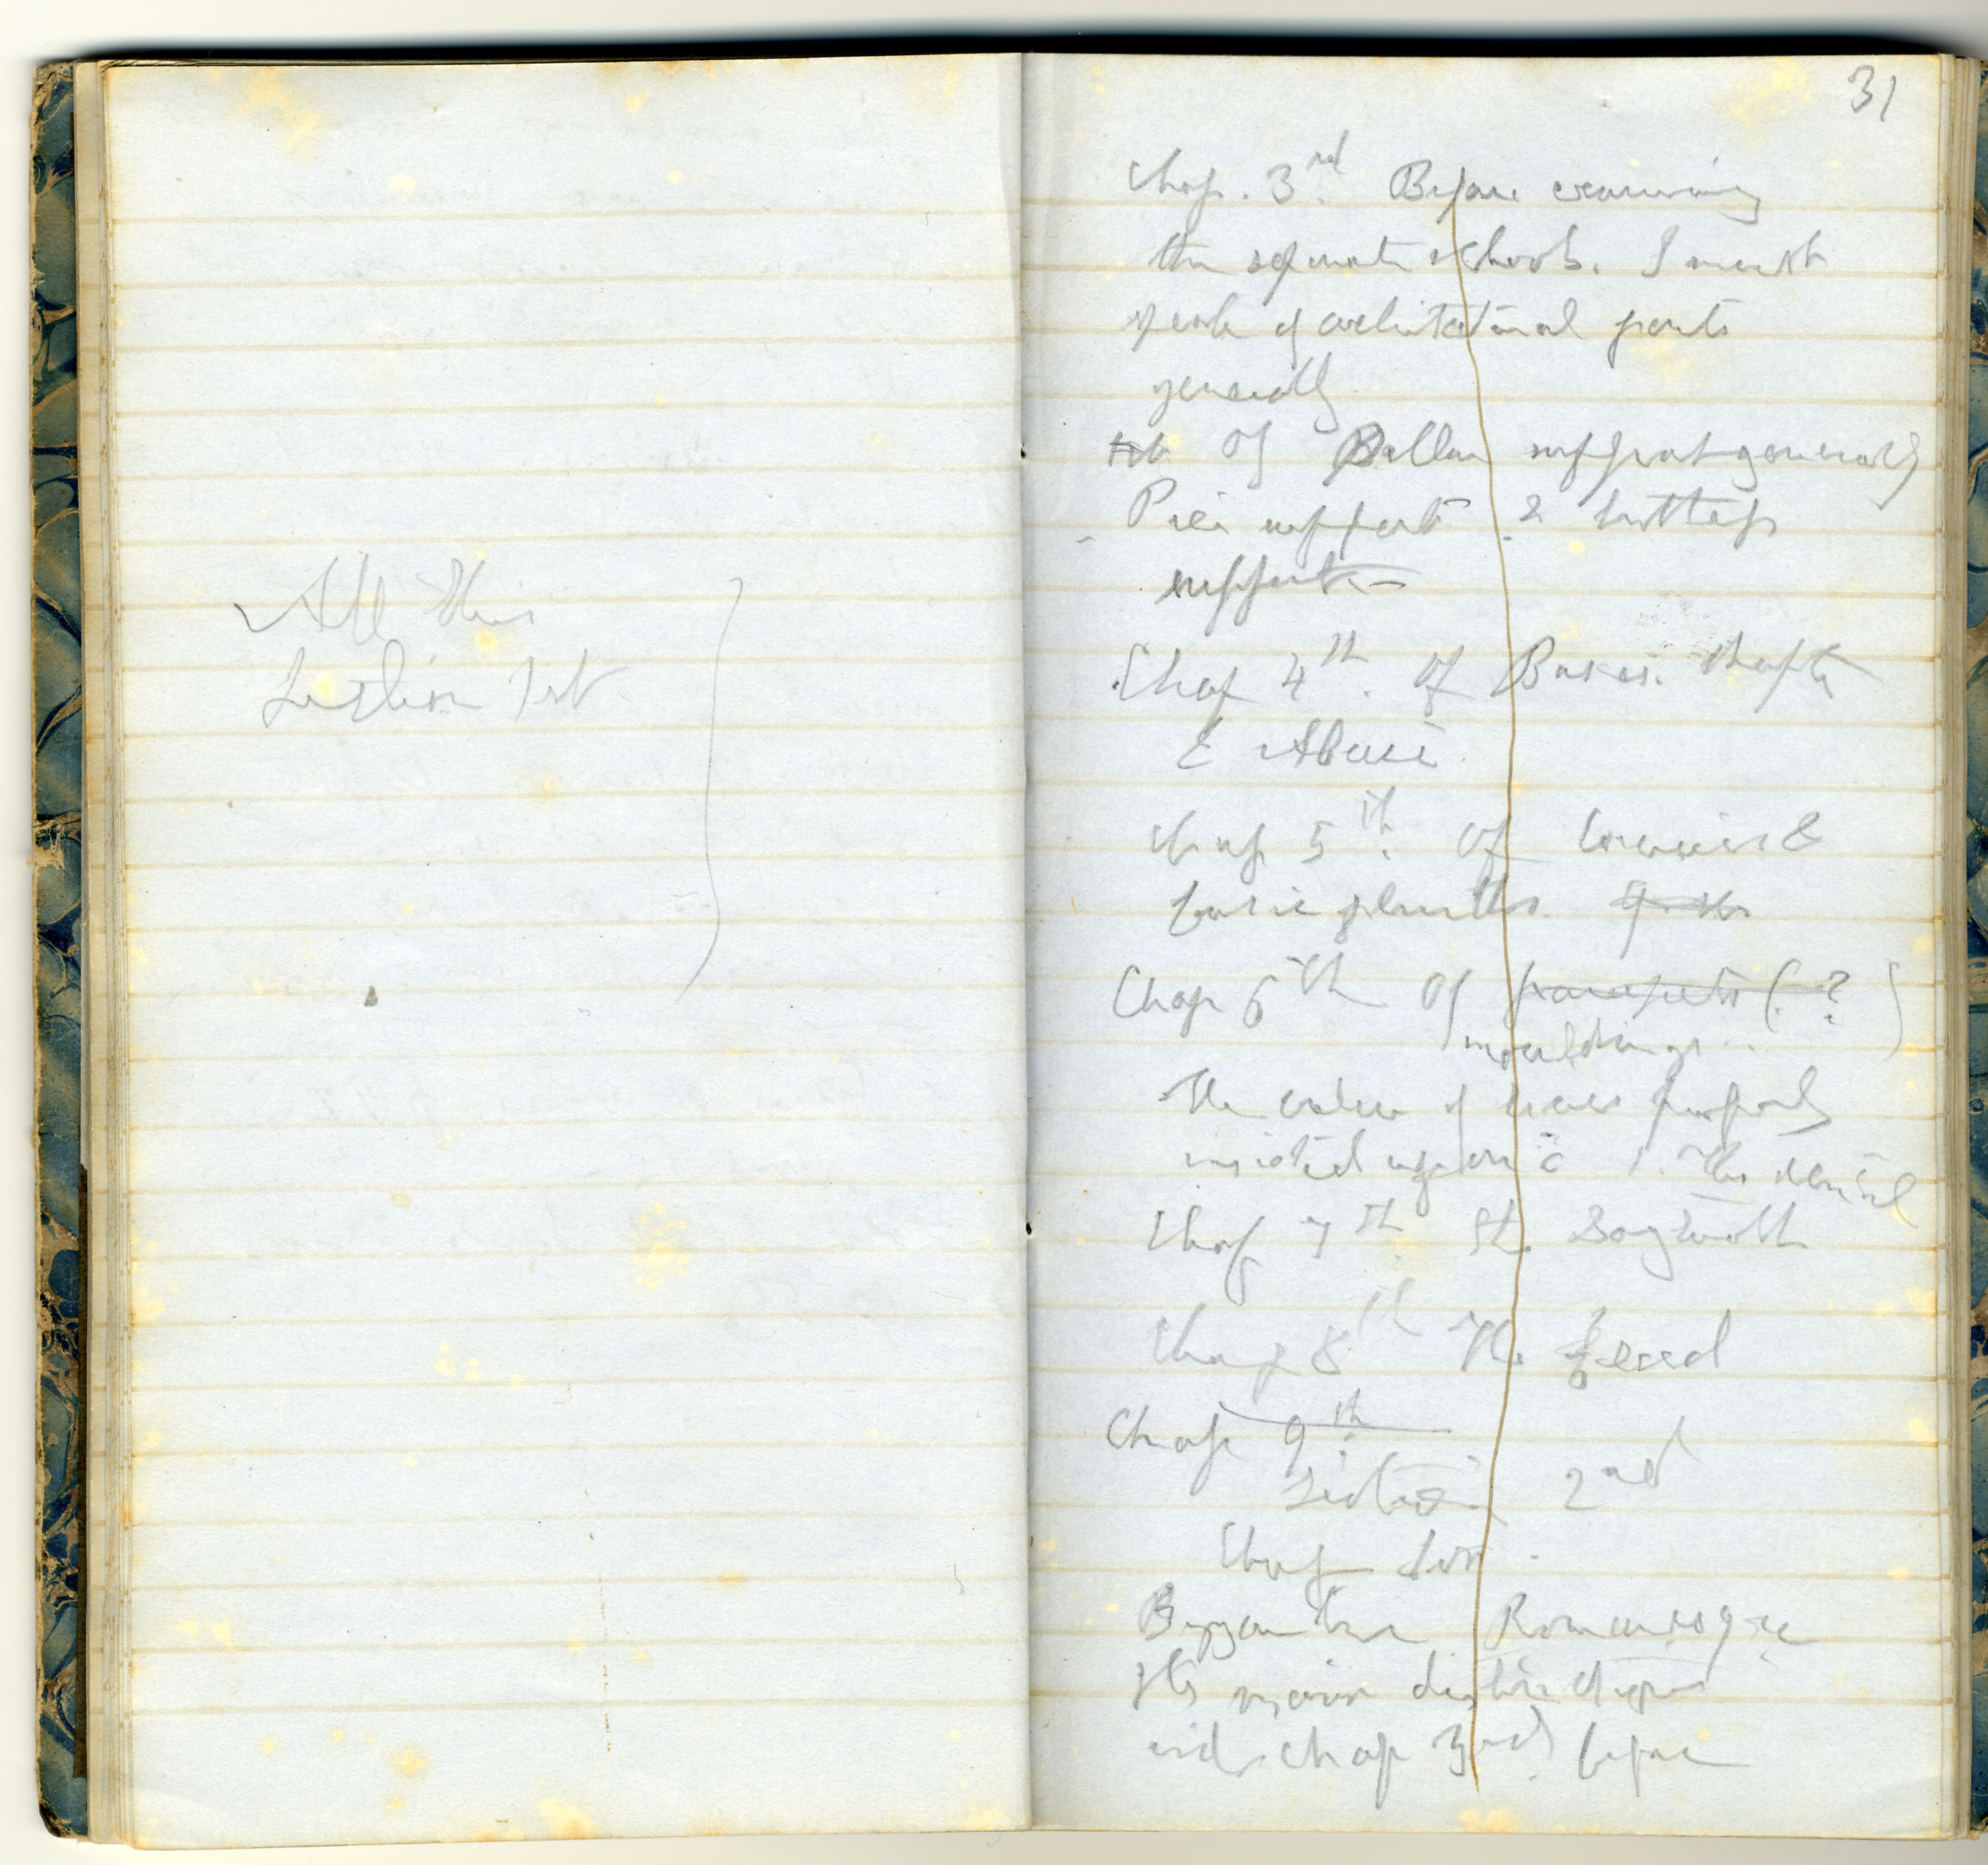 All this
Section 1st
31
Chap. 3rd. Before examining
the separate schools. I must
speak of architectural parts
generally
Of Pillar support generally
Pier support & buttress
support
Chap 4th. Of Bases. Shafts
& Abaci
Chap 5th. Of cornices &
basic plinths.
Chap 6th Of parapets (?)
mouldings.
The value of leaves purposely
insisted upon 1. The dentil
Chap 7th. The Dogtooth
Chap 8th The
Chap 9th.
Section 2nd
Chap 1st.
Byzantine Romanesque
Its main distinctions
vide chap 3rd before